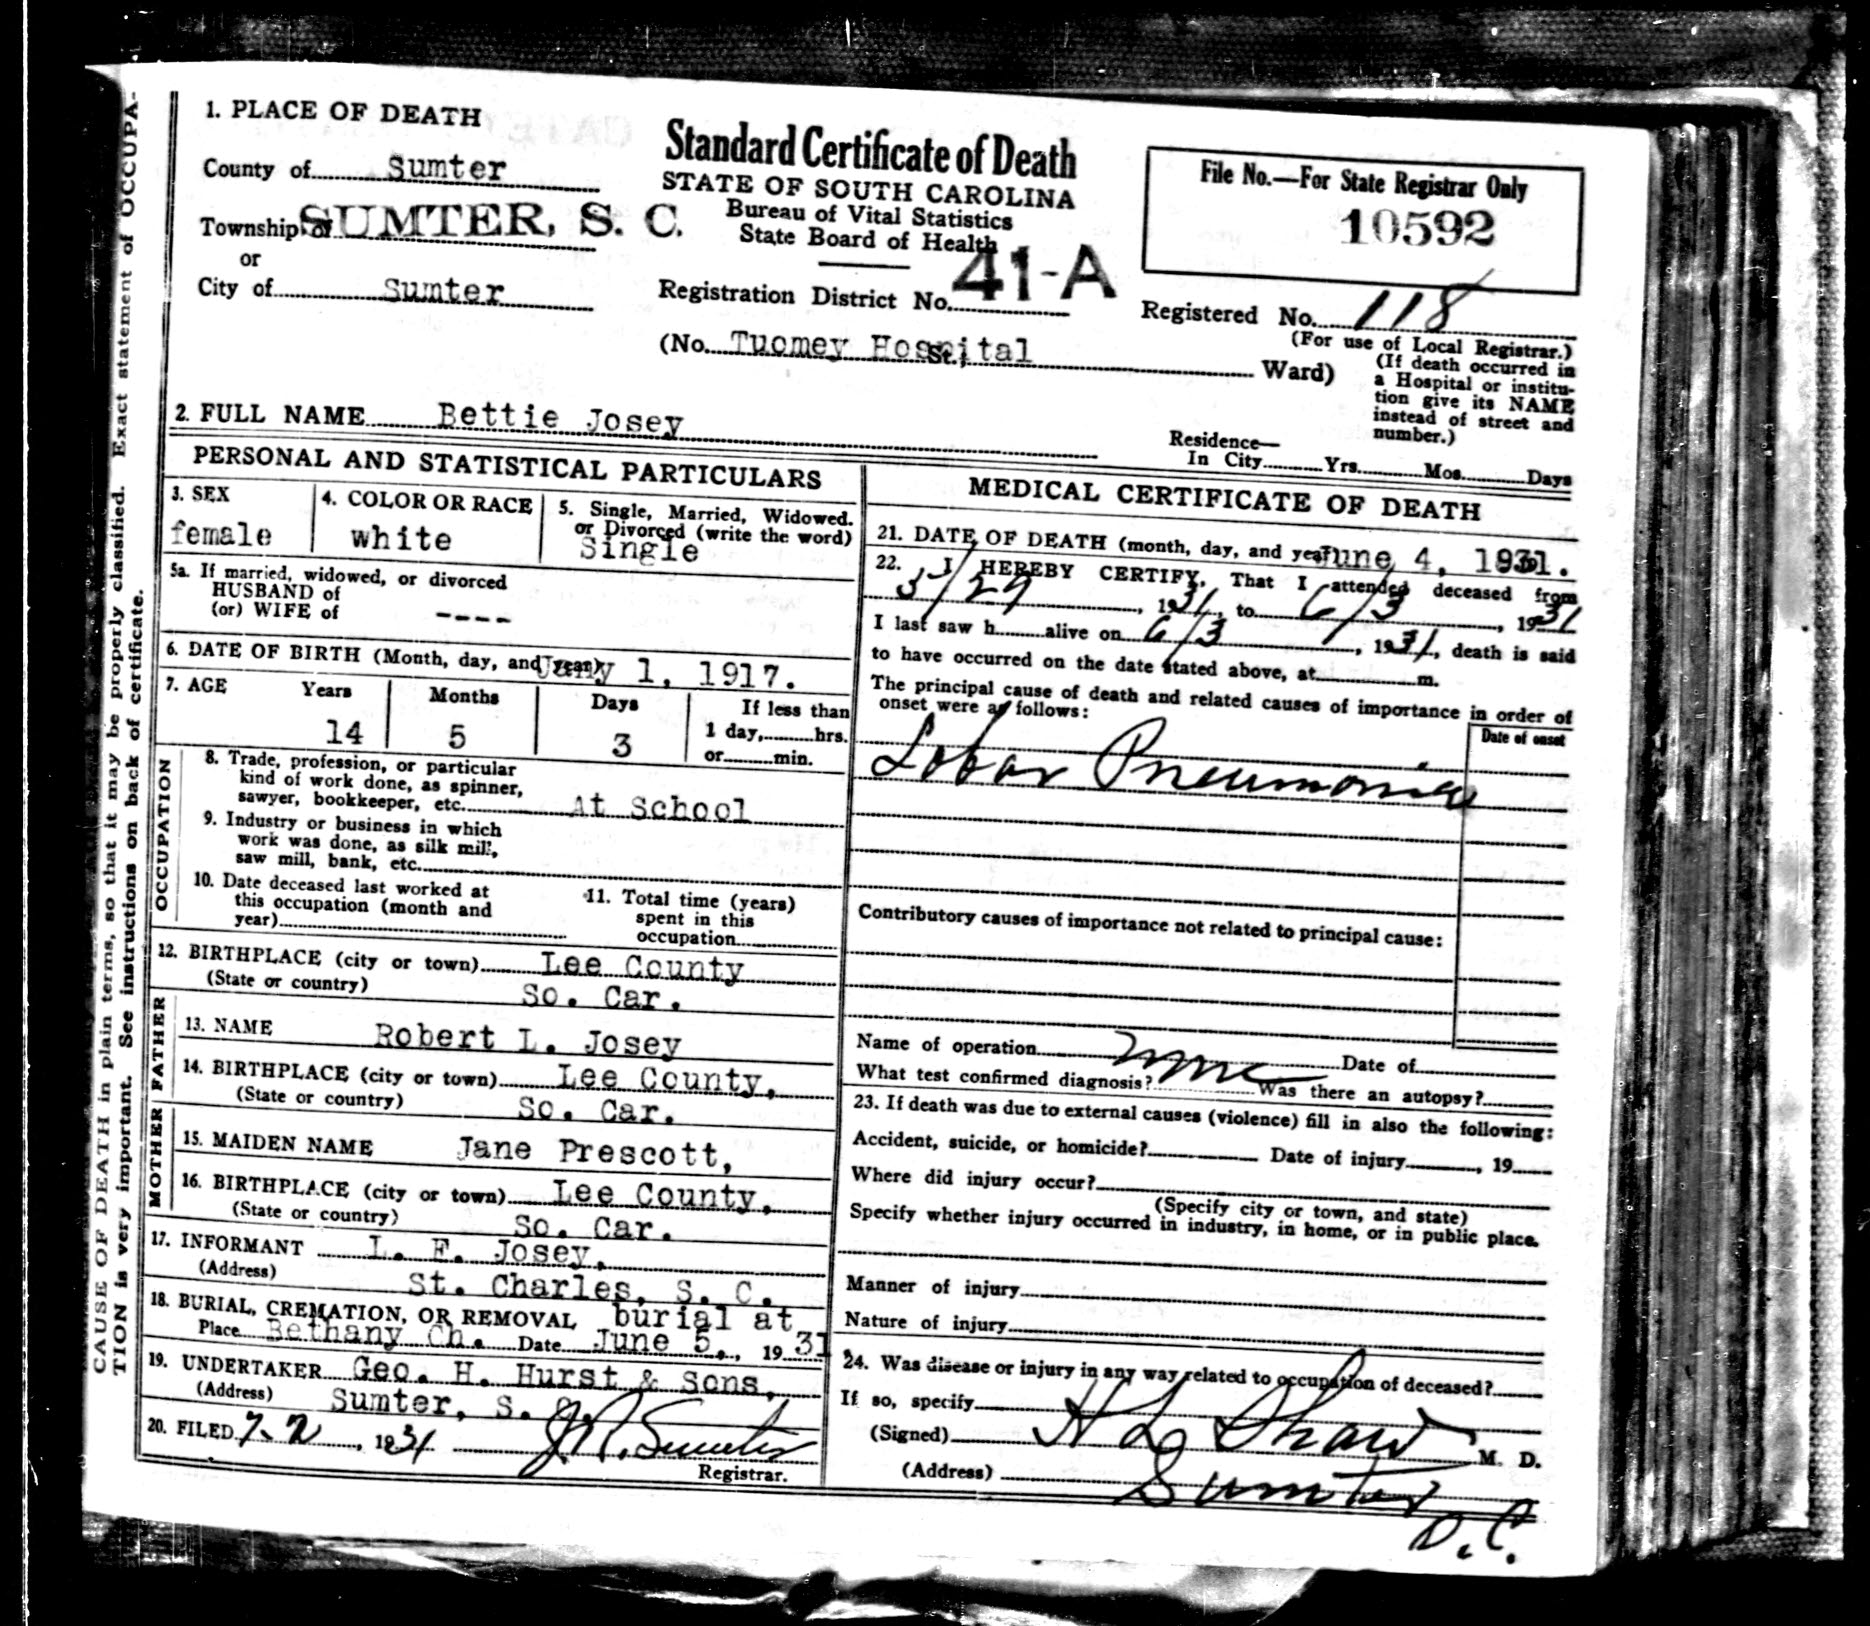 CAUSE OF DEATH in plain terms, so that it may be properly classified. Exact statement of OCCUPA-
TION is very important. See instructions on back of certificate.
1. PLACE OF DEATH
County of Sumter
Township of SUMTER, S. C.
or
City of Sumter
Standard Certificate of Death
STATE OF SOUTH CAROLINA
Bureau of Vital Statistics
State Board of Health
Registration District No. 41-A
(No. Tuomey Hospital St.; Ward)
File No.—For State Registrar Only
10592
Registered No. 118
(For use of Local Registrar.)
(If death occurred in
a Hospital or institu-
tion give its NAME
instead of street and
number.)
2. FULL NAME Bettie Josey
Residence—
In City Yrs. Mos. Days
PERSONAL AND STATISTICAL PARTICULARS
3. SEX
female
4. COLOR OR RACE
white
5. Single, Married, Widowed.
or Divorced (write the word)
Single
5a. If married, widowed, or divorced
HUSBAND of
(or) WIFE of ----
6. DATE OF BIRTH (Month, day, and year) 1, 1917.
7. AGE Years Months Days If less than
14 5 3 1 day, hrs.
or min.
OCCUPATION
8. Trade, profession, or particular
kind of work done, as spinner,
sawyer, bookkeeper, etc. At School
9. Industry or business in which
work was done, as silk mill,
saw mill, bank, etc.
10. Date deceased last worked at
this occupation (month and
year)
11. Total time (years)
spent in this
occupation
12. BIRTHPLACE (city or town) Lee County
(State or country) So. Car.
FATHER
13. NAME Robert L. Josey
14. BIRTHPLACE (city or town) Lee County,
(State or country) So. Car.
MOTHER
15. MAIDEN NAME Jane Prescott,
16. BIRTHPLACE (city or town) Lee County,
(State or country) So. Car.
17. INFORMANT L. E. Josey,
(Address) St. Charles, S. C.
18. BURIAL, CREMATION, OR REMOVAL burial at
Place Bethany Ch. Date June 5, 1931
19. UNDERTAKER Geo. H. Hurst & Sons,
(Address) Sumter, S. C.
20. FILED 7-2, 1931
Registrar.
MEDICAL CERTIFICATE OF DEATH
21. DATE OF DEATH (month, day, and year) June 4, 1931.
22. I HEREBY CERTIFY, That I attended deceased from
1931, to 6/3, 1931
I last saw h alive on 6/3, 1931, death is said
to have occurred on the date stated above, at m.
The principal cause of death and related causes of importance in order of
onset were as follows:
Date of onset
Lobar Pneumonia
Contributory causes of importance not related to principal cause:
Name of operation none Date of
What test confirmed diagnosis? Was there an autopsy?
23. If death was due to external causes (violence) fill in also the following:
Accident, suicide, or homicide? Date of injury, 19
Where did injury occur?
(Specify city or town, and state)
Specify whether injury occurred in industry, in home, or in public place.
Manner of injury
Nature of injury
24. Was disease or injury in any way related to occupation of deceased?
If so, specify
(Signed) H L Shaw M. D.
(Address) Sumter
S. C.